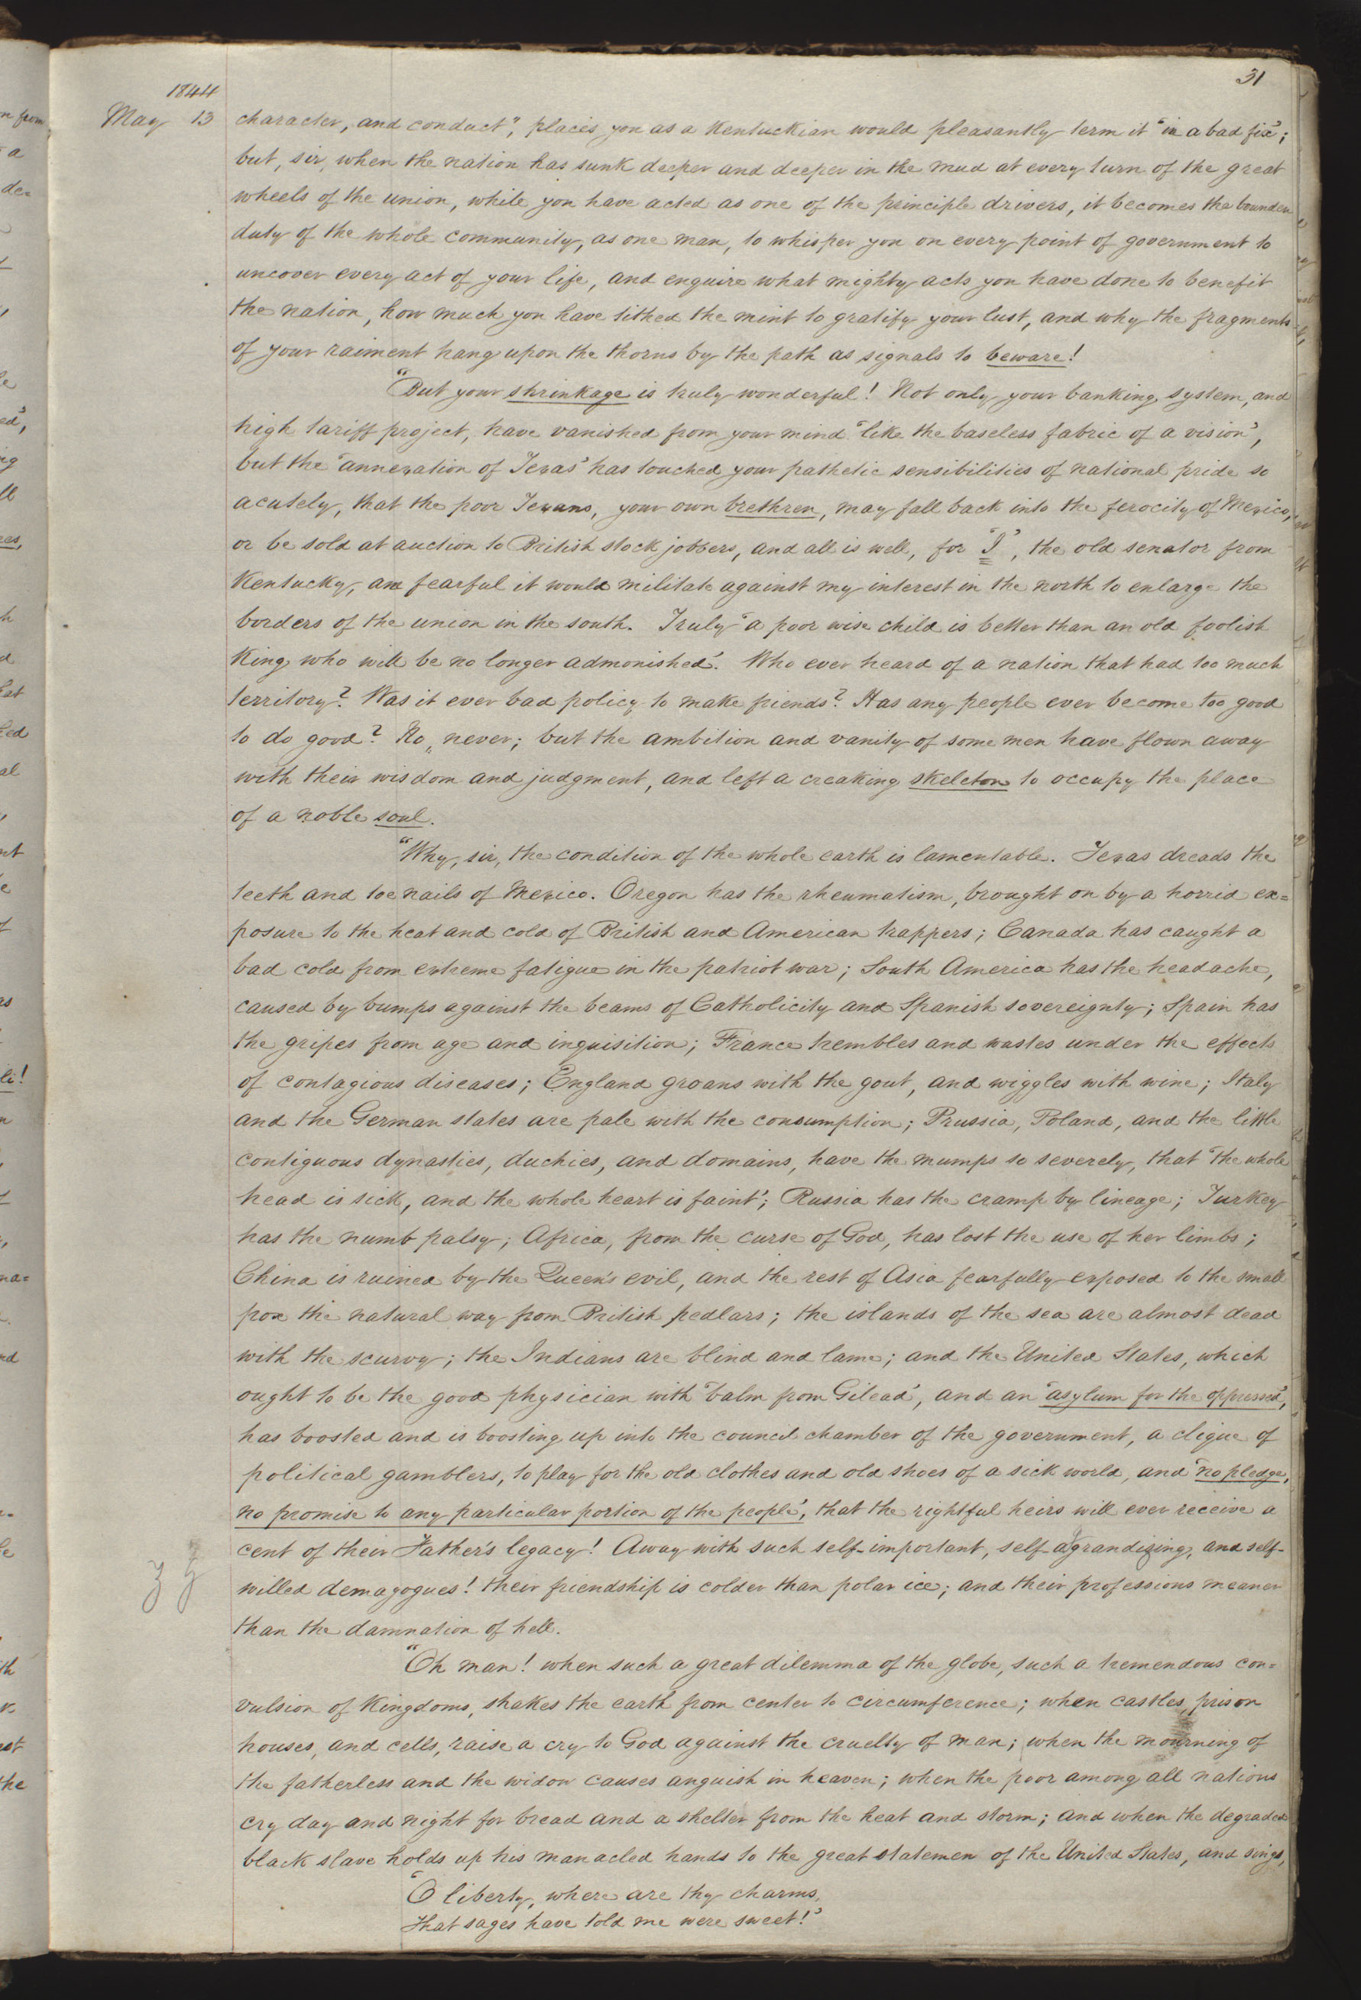 31
1844
May 13 character, and conduct", places you as a Kentuckian would pleasantly term it "in a bad fix";
but, sir, when the nation has sunk deeper and deeper in the mud at every turn of the great
wheels of the union, while you have acted as one of the principle drivers, it becomes the bounden
duty of the whole community, as one man, to whisper you on every point of government to
uncover every act of your life, and enquire what mighty acts you have done to benefit
the nation, how much you have tithed the mint to gratify your lust, and why the fragments
of your raiment hang upon the thorns by the path as signals to beware!
"But your shrinkage is truly wonderful! Not only your banking system, and
high tariff project, have vanished from your mind "like the baseless fabric of a vision",
but the "annexation of Texas" has touched your pathetic sensibilities of national pride so
acutely, that the poor Texans, your own brethren, may fall back into the ferocity of Mexico,
or be sold at auction to British stock jobbers, and all is well, for "I", the old senator from
Kentucky, am fearful it would militate against my interest in the north to enlarge the
borders of the union in the south. Truly "a poor wise child is better than an old foolish
King who will be no longer admonished". Who ever heard of a nation that had too much
territory? Was it ever bad policy to make friends? Has any people ever become too good
to do good? No, never; but the ambition and vanity of some men have flown away
with their wisdom and judgment, and left a creaking skeleton to occupy the place
of a noble soul.
"Why, sir, the condition of the whole earth is lamentable. Texas dreads the
teeth and toe nails of Mexico. Oregon has the rheumatism, brought on by a horrid ex=
posure to the heat and cold of British and American trappers; Canada has caught a
bad cold from extreme fatigue in the patriot war; South America has the headache,
caused by bumps against the beams of Catholicity and Spanish sovereignty; Spain has
the gripes from age and inquisition; France trembles and wastes under the effects
of contagious diseases; England groans with the gout, and wiggles with wine; Italy
and the German states are pale with the consumption; Prussia, Poland, and the little
contiguous dynasties, duchies, and domains, have the mumps so severely, that "the whole
head is sick, and the whole heart is faint"; Russia has the cramp by lineage; Turkey
has the numb palsy; Africa, from the curse of God, has lost the use of her limbs;
China is ruined by the Queen's evil, and the rest of Asia fearfully exposed to the small
pox the natural way from British pedlars; the islands of the sea are almost dead
with the scurvy; the Indians are blind and lame; and the United States, which
ought to be the good physician with "balm from Gilead", and an "asylum for the oppressed",
has boosted and is boosting up into the council chamber of the government, a clique of
political gamblers, to play for the old clothes and old shoes of a sick world, and "no pledge,
no promise to any particular portion of the people", that the rightful heirs will ever receive a
cent of their Father's legacy! Away with such self-important, self-aggrandizing, and self-
willed demagogues! their friendship is colder than polar ice; and their professions meaner
than the damnation of hell.
"Oh man! when such a great dilemma of the globe, such a tremendous con=
vulsion of Kingdoms, shakes the earth from center to circumference; when castles, prison
houses, and cells, raise a cry to God against the cruelty of man; when the mourning of
the fatherless and the widow causes anguish in heaven; when the poor among all nations
cry day and night for bread and a shelter from the heat and storm; and when the degraded
black slave holds up his manacled hands to the great statemen of the United States, and sings,
"O liberty, where are thy charms,
That sages have told me were sweet!"